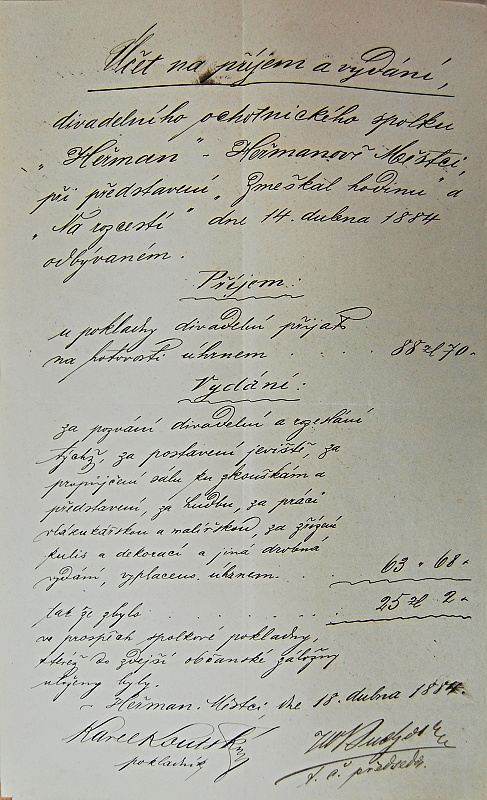 Účet na příjem a vydání,
divadelního ochotnického spolku
„Heřman" v Heřmanově Městci,
při představení „Zmeškal hodinu" a
„Na rozcestí" dne 14. dubna 1884
odbývaném.
Příjem:
u pokladny divadelní přijato
na hotovosti úhrnem . . . . 88 zl 70 „
Vydání:
za pozvání divadelní a rozeslání
týchž, za postavení jeviště, za
propůjčení sálu ku zkouškám a
představení, za hudbu, za práci
a malířskou, za zřízení
kulis a dekorací a jiná drobná
vydání, vyplaceno úhrnem . . . 63 „ 68 „
tak že zbylo . . . . . . . 25 zl 2 „
ve prospěch spolkové pokladny,
kteréž do zdejší občanské záložny
uloženy byly.
V Heřman. Městci, dne 18. dubna 1884.
Karel
pokladník
t. č. předseda